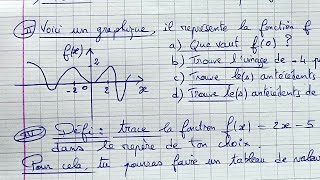 II) Voici un graphique, il représente la fonction f
f(x)
a) Que vaut f(0) ?
b) Trouve l'image de -4 p
c) Trouve le(s) antécédents
d) Trouve le(s) antécédents de
2
-2 0 2 x
III) Défi : trace la fonction f(x) = 2x - 5
dans le repère de ton choix.
Pour cela, tu pourras faire un tableau de valeu